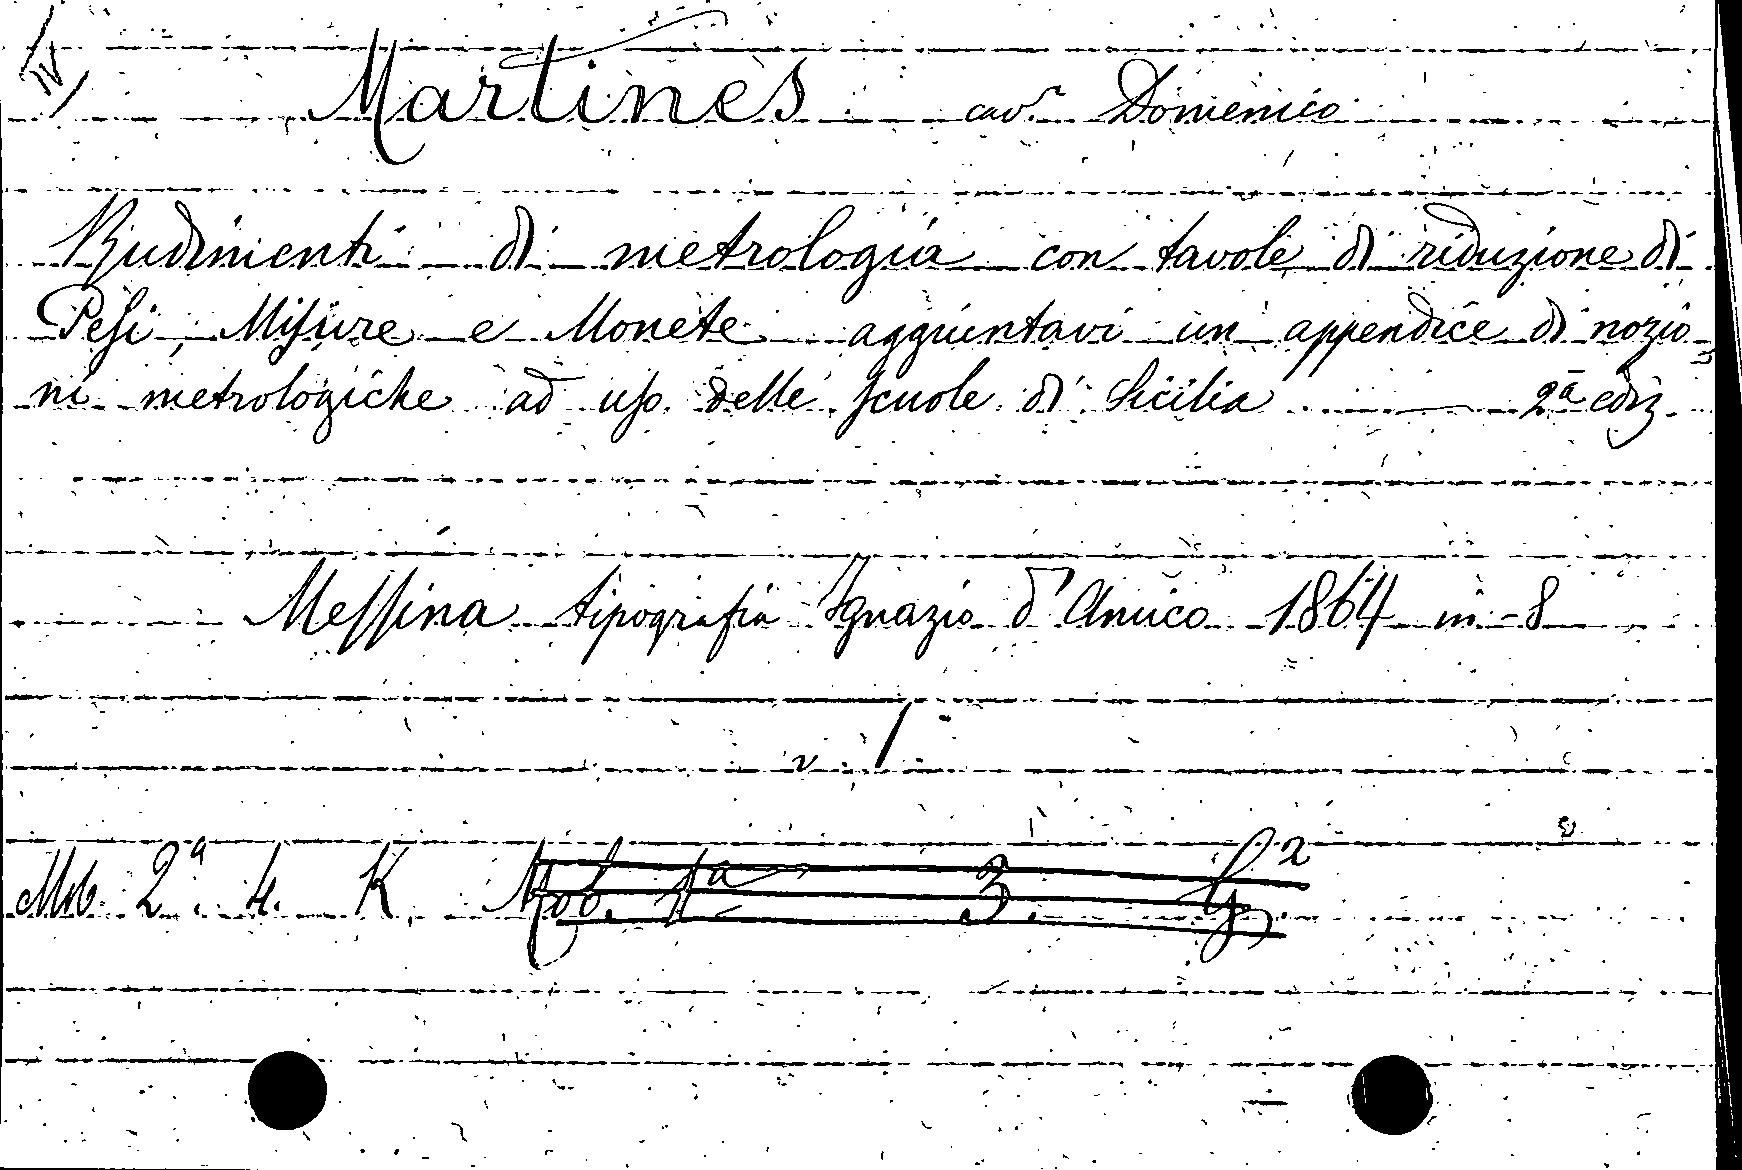 IV
Martines cav.r Domenico
Rudimenti di metrologia con tavole di riduzione di
Pesi, Misure e Monete aggiuntavi un appendice di nozio=
ni metrologiche ad uso delle scuole di Sicilia — 2ª ediz.
Messina tipografia Ignazio d'Amico 1864 in-8
v. 1
Mob. 2ª. 4. K. Mob. 1ª 3.